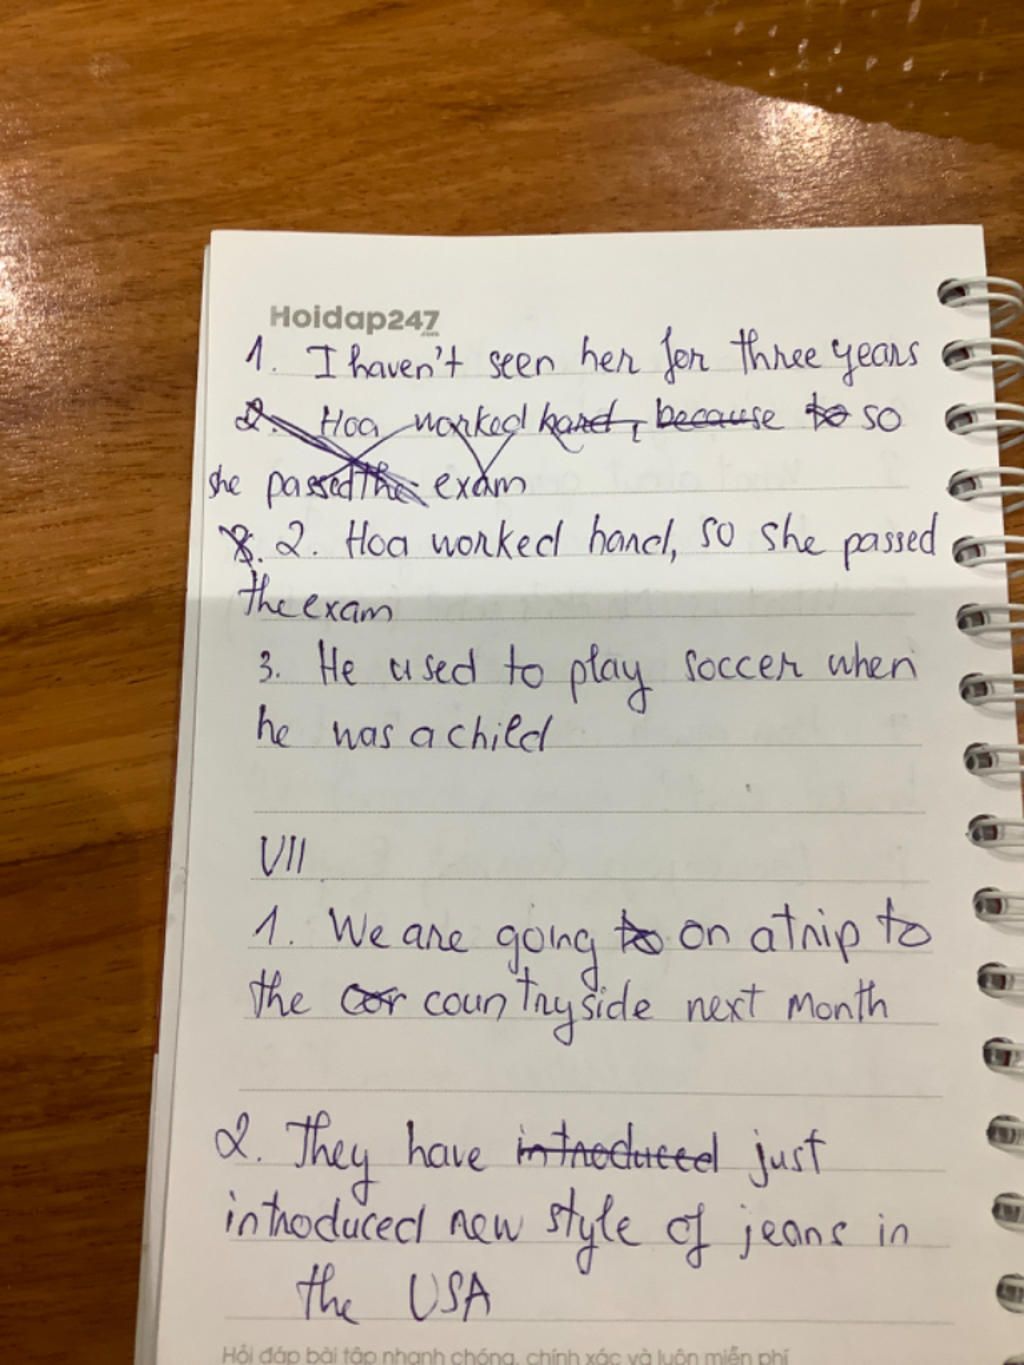 Hoidap247
.com
1. I haven't seen her for three years
2. Hoa worked hard, because to so
she passed the exam
8. 2. Hoa worked hard, so she passed
the exam
3. He used to play soccer when
he was a child
VII
1. We are going to on a trip to
the cor countryside next month
2. They have introduced just
introduced new style of jeans in
the USA
Hỏi đáp bài tập nhanh chóng, chính xác và luôn miễn phí